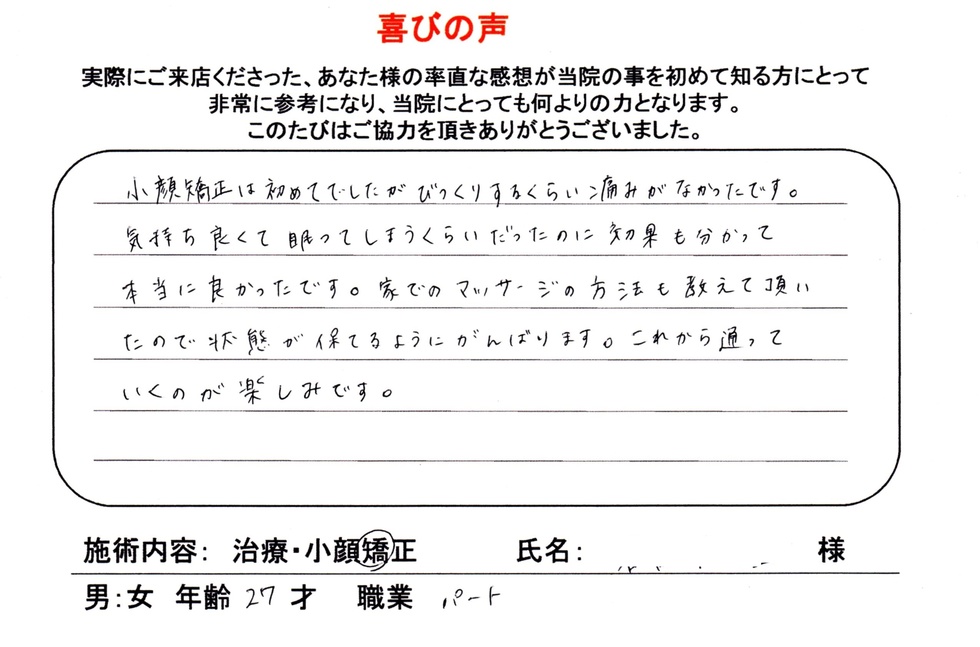 喜びの声
実際にご来店くださった、あなた様の率直な感想が当院の事を初めて知る方にとって
非常に参考になり、当院にとっても何よりの力となります。
このたびはご協力を頂きありがとうございました。
小顔矯正は初めてでしたがびっくりするくらい痛みがなかったです。
気持ち良くて眠ってしまうくらいだったのに効果も分かって
本当に良かったです。家でのマッサージの方法も教えて頂い
たので状態が保てるようにがんばります。これから通って
いくのが楽しみです。
施術内容: 治療・小顔矯正 氏名: 様
男:女 年齢 27 才 職業 パート